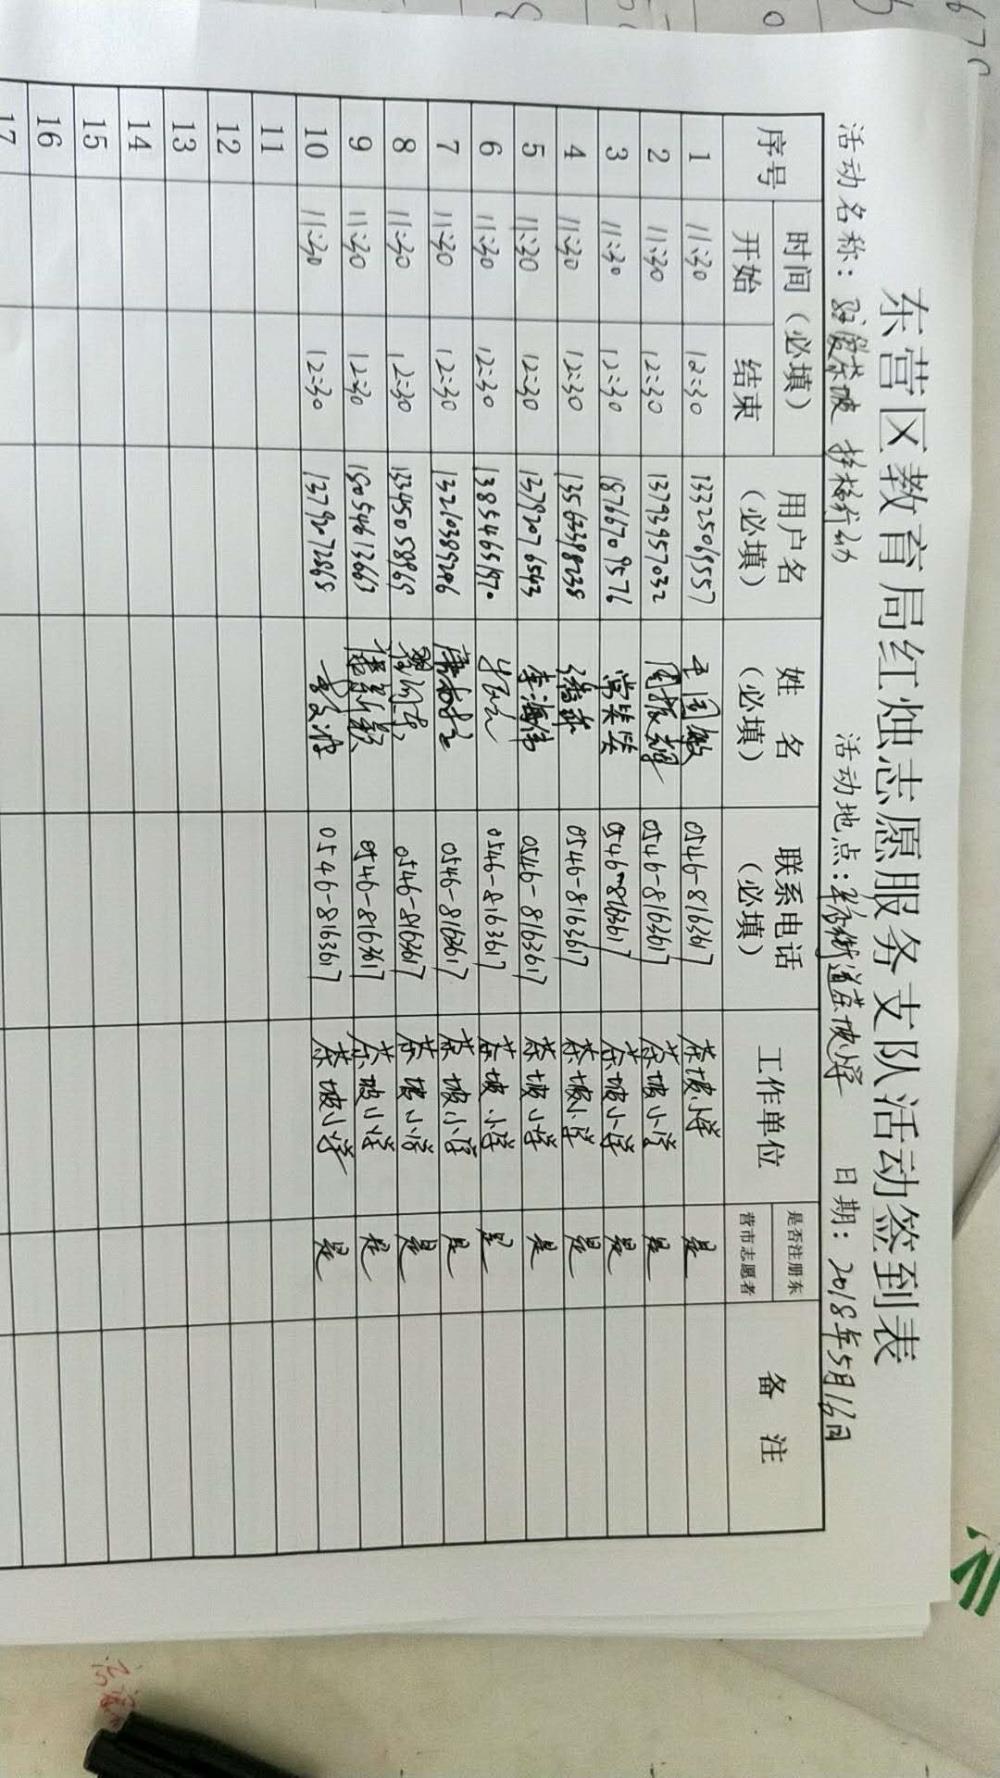 东营区教育局红烛志愿服务支队活动签到表
活动名称： 活动地点： 日期：2018年5月16日
序号 时间（必填） 用户名（必填） 姓 名（必填） 联系电话（必填） 工作单位 是否注册东营市志愿者 备 注
开始 结束
1 11:30 12:30 13325069557 王国敏 0546-8163617 茶坡小学 是
2 11:30 12:30 13793957032 周振辉 0546-8163617 茶坡小学 是
3 11:30 12:30 18766709576 0546-8163617 茶坡小学 是
4 11:30 12:30 13563398238 0546-8163617 茶坡小学 是
5 11:30 12:30 13792076543 李海伟 0546-8163617 茶坡小学 是
6 11:30 12:30 0546-8163617 茶坡小学 是
7 11:30 12:30 0546-8163617 茶坡小学 是
8 11:30 12:30 13345058969 0546-8163617 茶坡小学 是
9 11:30 12:30 15054613663 0546-8163617 茶坡小学 是
10 11:30 12:30 13792072868 0546-8163617 茶坡小学 是
11
12
13
14
15
16
17